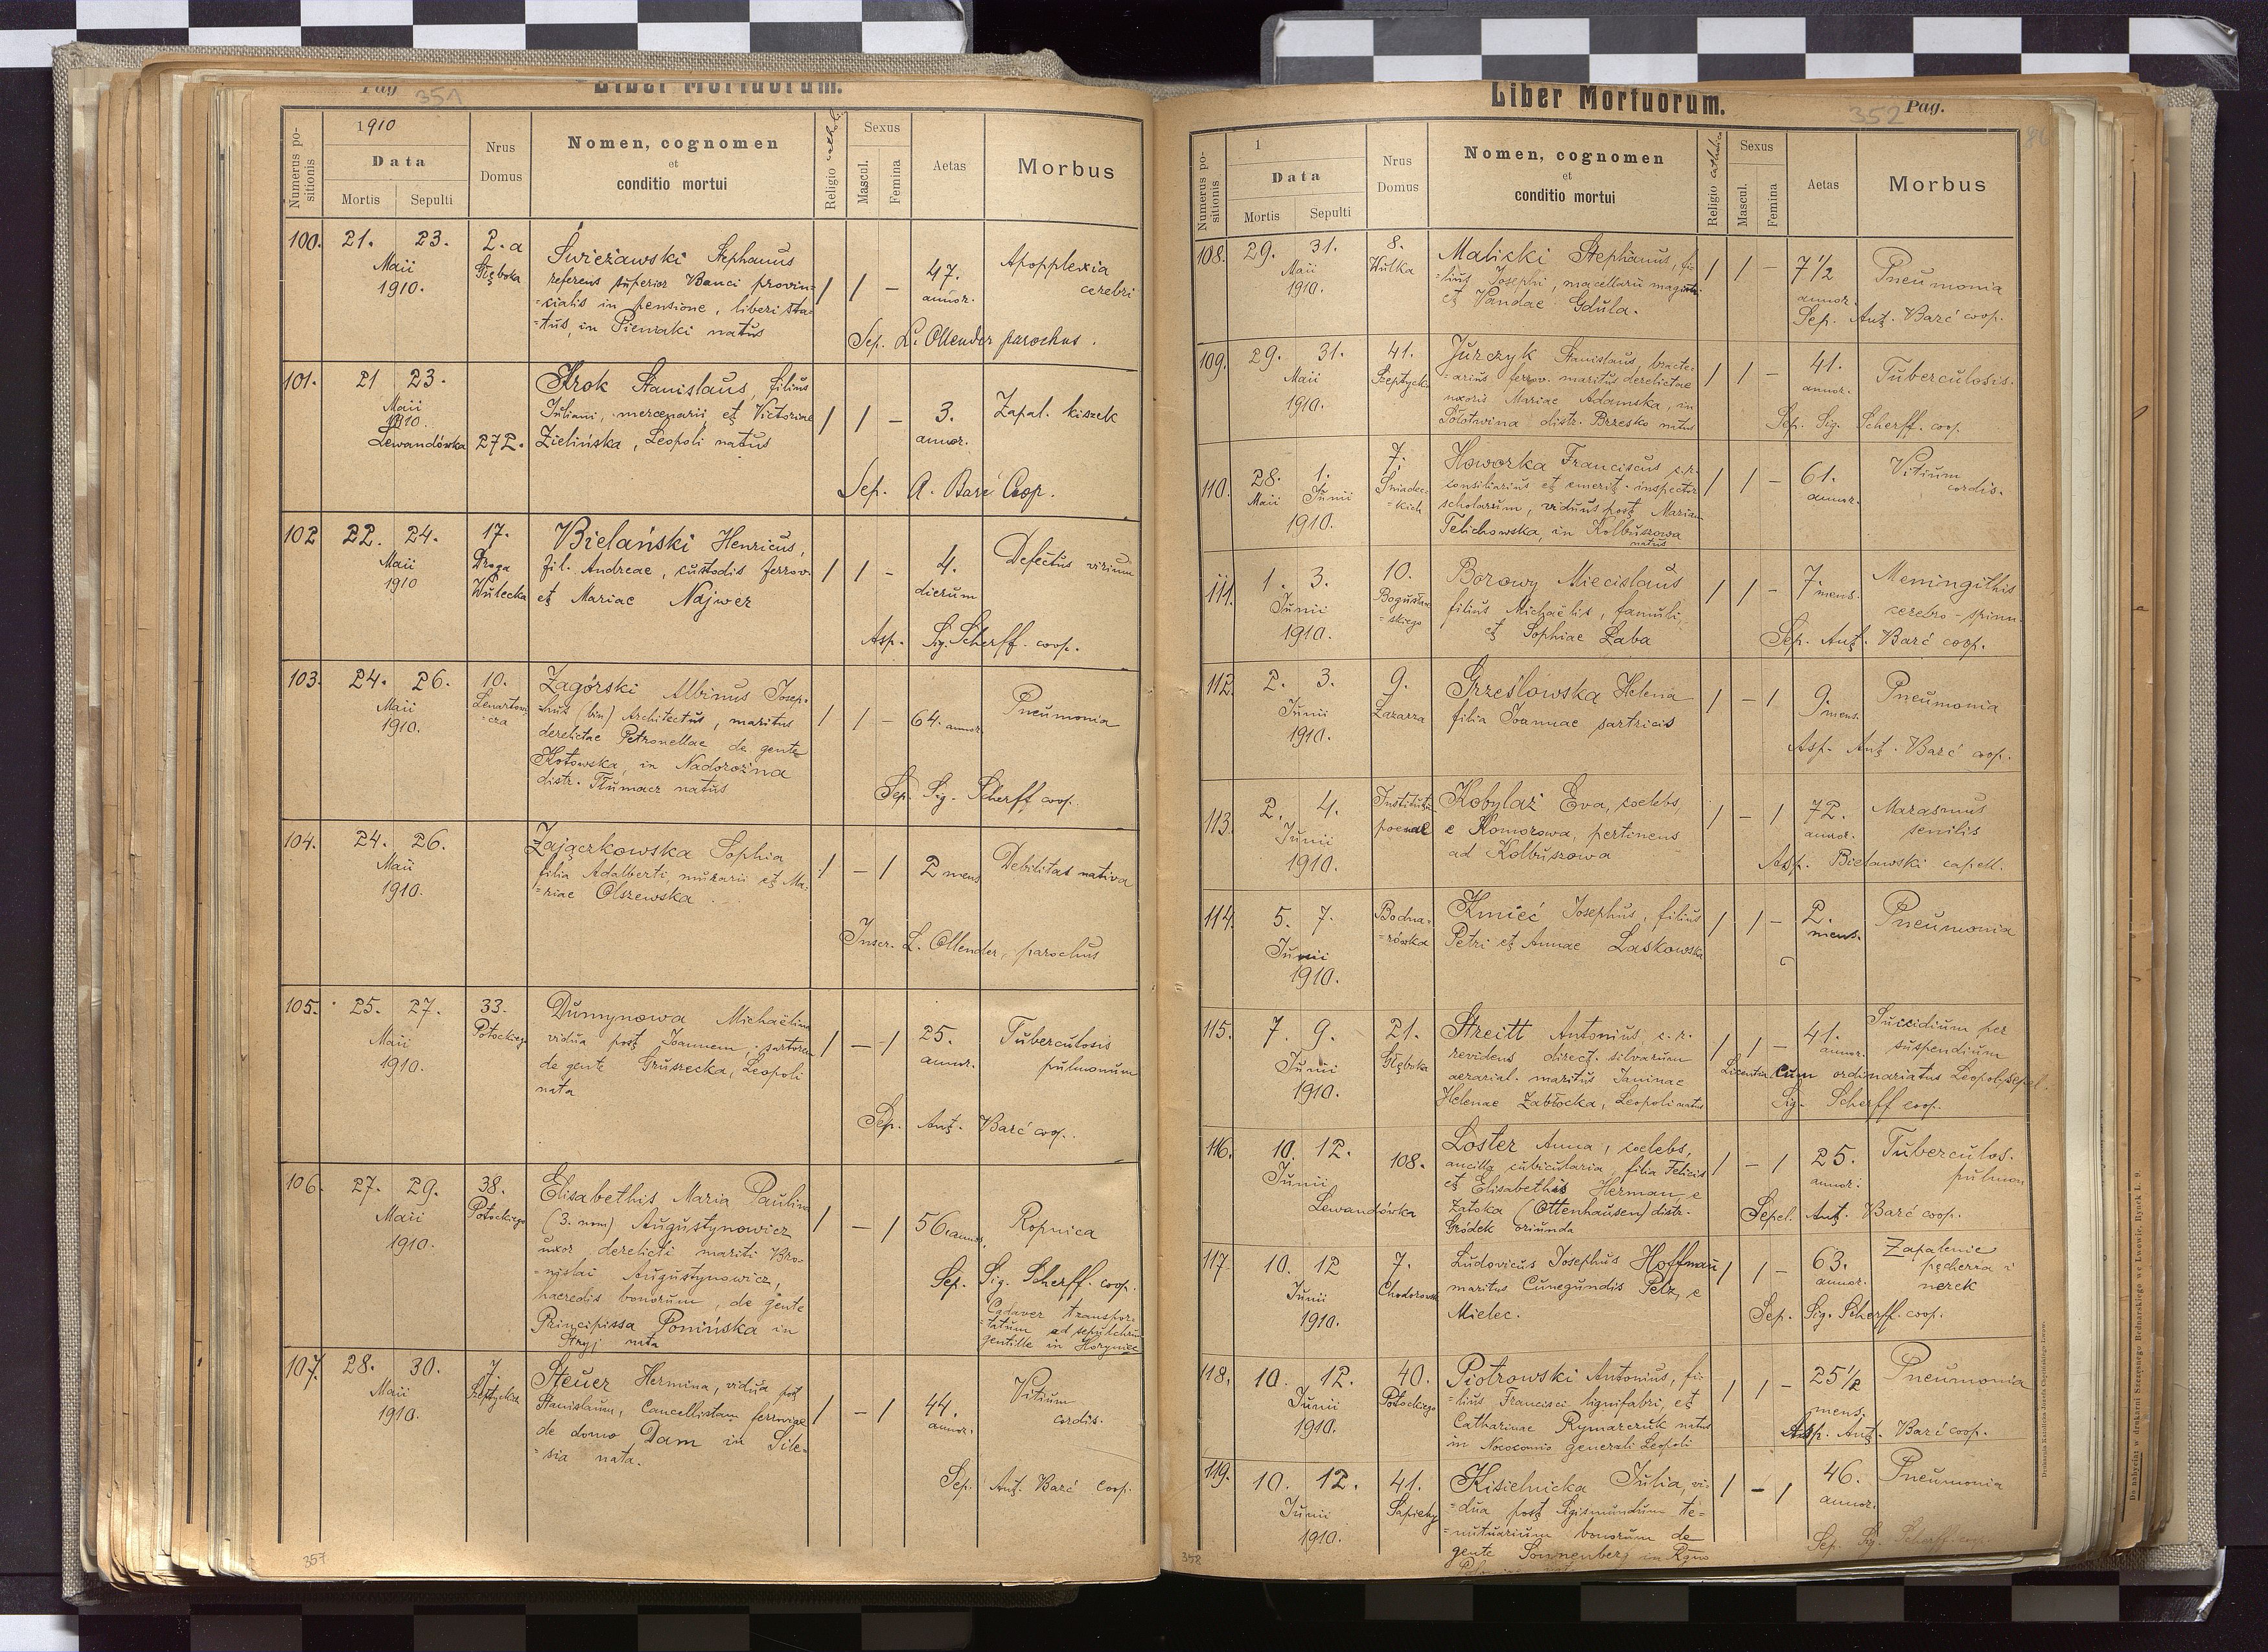 Pag 351
Liber Mortuorum.
Numerus positionis
1910
Data
Mortis Sepulti
Nrus Domus
Nomen, cognomen
et
conditio mortui
Religio cathol.
Sexus
Mascul. Femina
Aetas
Morbus
100. 21. 23. 2.a Świeżawski Stephanus
Maii Głęboka referens superior Banci provin= / / - 47. Apopplexia
1910. =cialis in pensione, liberi sta= annor. cerebri
=tus, in Pieniaki natus
Sep. L. Ollender parochus.
101. 21 23. Krok Stanislaus, filius
Maii Juliani, mercenarii, et Victoriae / / - 3. Zapal. kiszek
1910.
Lewandówka 272. Zielińska, Leopoli natus annor.
Sep. A. Barć Coop.
102 22. 24. 17. Bielański Henricus,
Maii Droga fil. Andreae, custodis ferrov. / / - 4. Defectus virium
1910 Wulecka et Mariae Najwer dierum
Asp. Sig. Scherff. coop.
103. 24. 26. 10. Zagórski Albinus Josep=
Maii Lenartowi= hus (bin) Architectus, maritus / / - 64. annor. Pneumonia
1910. =cza derelictae Petronellae de gente
Kotowska, in Nadorożna
distr. Tłumacz natus
Sep. Sig. Scherff coop.
104. 24. 26. Zajączkowska Sophia
Maii filia Adalberti, murarii et Ma= / - / 2 mens Debilitas nativa
1910. =riae Olszewska
Inscr. L. Ollender, parochus
105. 25. 27. 33. Dumynowa Michaëlina
Maii Potockiego vidua post Joannem, sartorem / - / 25. Tuberculosis
1910. de gente Gruszecka, Leopoli annor. pulmonum
nata
Sep. Ant. Barć coop.
106. 27. 29. 38. Elisabethis Maria Paulina
Maii Potockiego (3. nom) Augustynowicz / - / 56 annor. Ropnica
1910. uxor derelicti mariti Bro=
=nislai Augustynowicz,
haeredis bonorum, de gente
Principissa Ponińska in
Stryj nata
Sep. Sig. Scherff. coop.
Cadaver transpor=
=tatum ad sepulchrum
gentille in Horyniec
107. 28. 30. 7. Steuer Hermina, vidua post
Maii Szeptyckich Stanislaum, Cancellistam ferrviae / - / 44. Vitium
1910. de domo Dam in Sile= annor. cordis.
=sia nata.
Sep. Ant. Barć coop.
357
Liber Mortuorum.
352 Pag.
Numerus positionis
1
Data
Mortis Sepulti
Nrus Domus
Nomen, cognomen
et
conditio mortui
Religio catholica
Sexus
Mascul. Femina
Aetas
Morbus
108. 29. 31. 8. Malicki Stephanus, fi=
Maii Wulka =lius Josephi, macellarii magistri / / - 7 1/2 Pneumonia
1910. et Vandae Gdula. annor.
Sep. Ant. Barć coop.
109. 29. 31. 41. Jurczyk Stanislaus, bracte=
Maii Szeptyckich =arius ferrov. maritus derelictae / / - 41. Tuberculosis.
1910. uxoris Mariae Adamska, in annor.
Sołotwina distr. Brzesko natus
Sep. Sig. Scherff. coop.
110. 28. 1. 7. Howorka Franciscus c.r.
Maii Junii Śniadec= consiliarius et emerit. inspector / / - 61. Vitium
1910. =kich scholarum, viduus post Mariam annor. cordis.
Telichowska, in Kolbuszowa
natus
111. 1. 3. 10. Borowy Miecislaus
Junii Bogusław= filius Michaëlis, famuli, / / - 7. mens. Meningithis
1910. =skiego et Sophiae Łaba cerebro-spinn.
Sep. Ant. Barć coop.
112. 2. 3. 9. Grześlowska Helena
Junii Łazarza filia Joannae sartricis / - / 9. mens. Pneumonia
1910.
Asp. Ant. Barć coop.
113. 2. 4. Institut. Kobylaż Eva, coelebs,
Junii poenale e Komorowa, pertinens / - / 72. Marasmus
1910. ad Kolbuszowa annor. senilis
Asp. Bielawski capell.
114. 5. 7. Bodna= Kmieć Josephus, filius
Junii =rówka Petri et Annae Laskowska / / - 2. mens. Pneumonia
1910.
115. 7. 9. 21. Streitt Antonius, c.r.
Junii Głęboka revidens direct. silvarum / / - 41. Suicidium per
1910. aerarial. maritus Janinae annor. suspendium
Helenae Zabłocka, Leopoli natus
Licentia cum ordinariatus Leopol. sepel.
Sig. Scherff coop.
116. 10. 12. 108. Loster Anna, coelebs,
Junii ancilla cubicularia, filia Felicis / - / 25. Tuberculos.
et Elisabethis Herman, e annor. pulmon
Lewandówka Zatoka (Ottenhausen) distr.
Gródek oriunda
Sepel. Ant. Barć coop.
117 10. 12 7. Ludovicus Josephus Hoffman
Junii Chodorowsk. maritus Cunegundis Pelz, e / / - 63. Zapalenie
1910. Mielec. annor. pęcherza i
nerek
Sep. Sig. Scherff. coop.
118. 10. 12. 40. Piotrowski Antonius, fi=
Junii Potockiego =lius Francisci lignifabri, et / / - 25 1/2 Pneumonia
1910. Catharinae Rymarczuk natus mens.
in Nosocomio generali Leopoli
Asp. Ant. Barć coop.
119. 10. 12. 41. Kisielnicka Julia, vi=
Junii Sapiehy =dua post Sigismundum te= / - / 46. Pneumonia
1910. =nutuarium bonorum de annor.
gente Sonnenberg in Regno
Sep. Sig. Scherff coop.
358
Do nabycia w drukarni Szczęsnego Bednarskiego we Lwowie, Rynek L. 9.